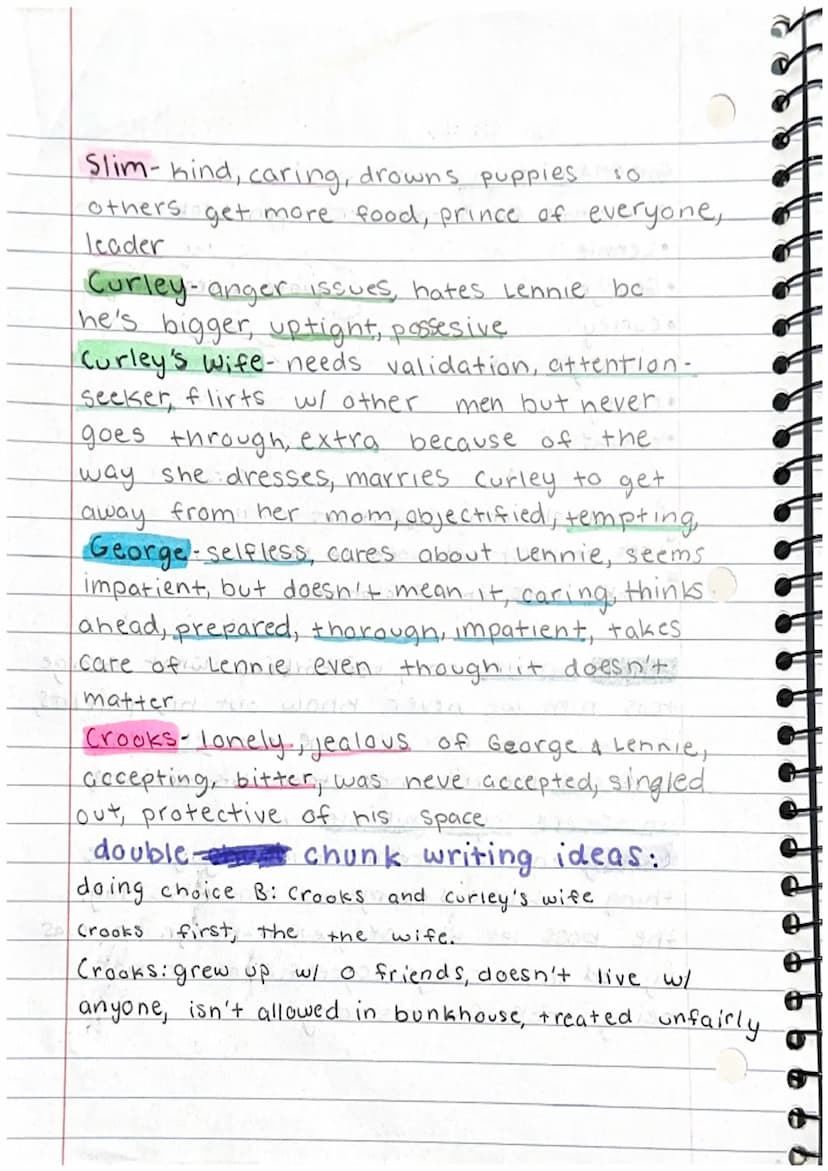 Slim- kind, caring, drowns puppies so
others get more food, prince of everyone,
leader
Curley-anger issues, hates Lennie bc
he's bigger, uptight, possesive
Curley's Wife- needs validation, attention-
seeker, flirts w/ other men but never
goes through, extra because of the
way she dresses, marries Curley to get
away from her mom, objectified, tempting,
George-selfless, cares about Lennie, seems
impatient, but doesn't mean it, caring, thinks
ahead, prepared, thorough, impatient, takes
care of Lennie even though it doesn't
matter
Crooks- lonely, jealous of George & Lennie,
accepting, bitter, was neve accepted, singled
out, protective of his space
double chunk writing ideas:
doing choice B: Crooks and curley's wife
Crooks first, the the wife.
Crooks: grew up w/ 0 friends, doesn't live w/
anyone, isn't allowed in bunkhouse, treated unfairly